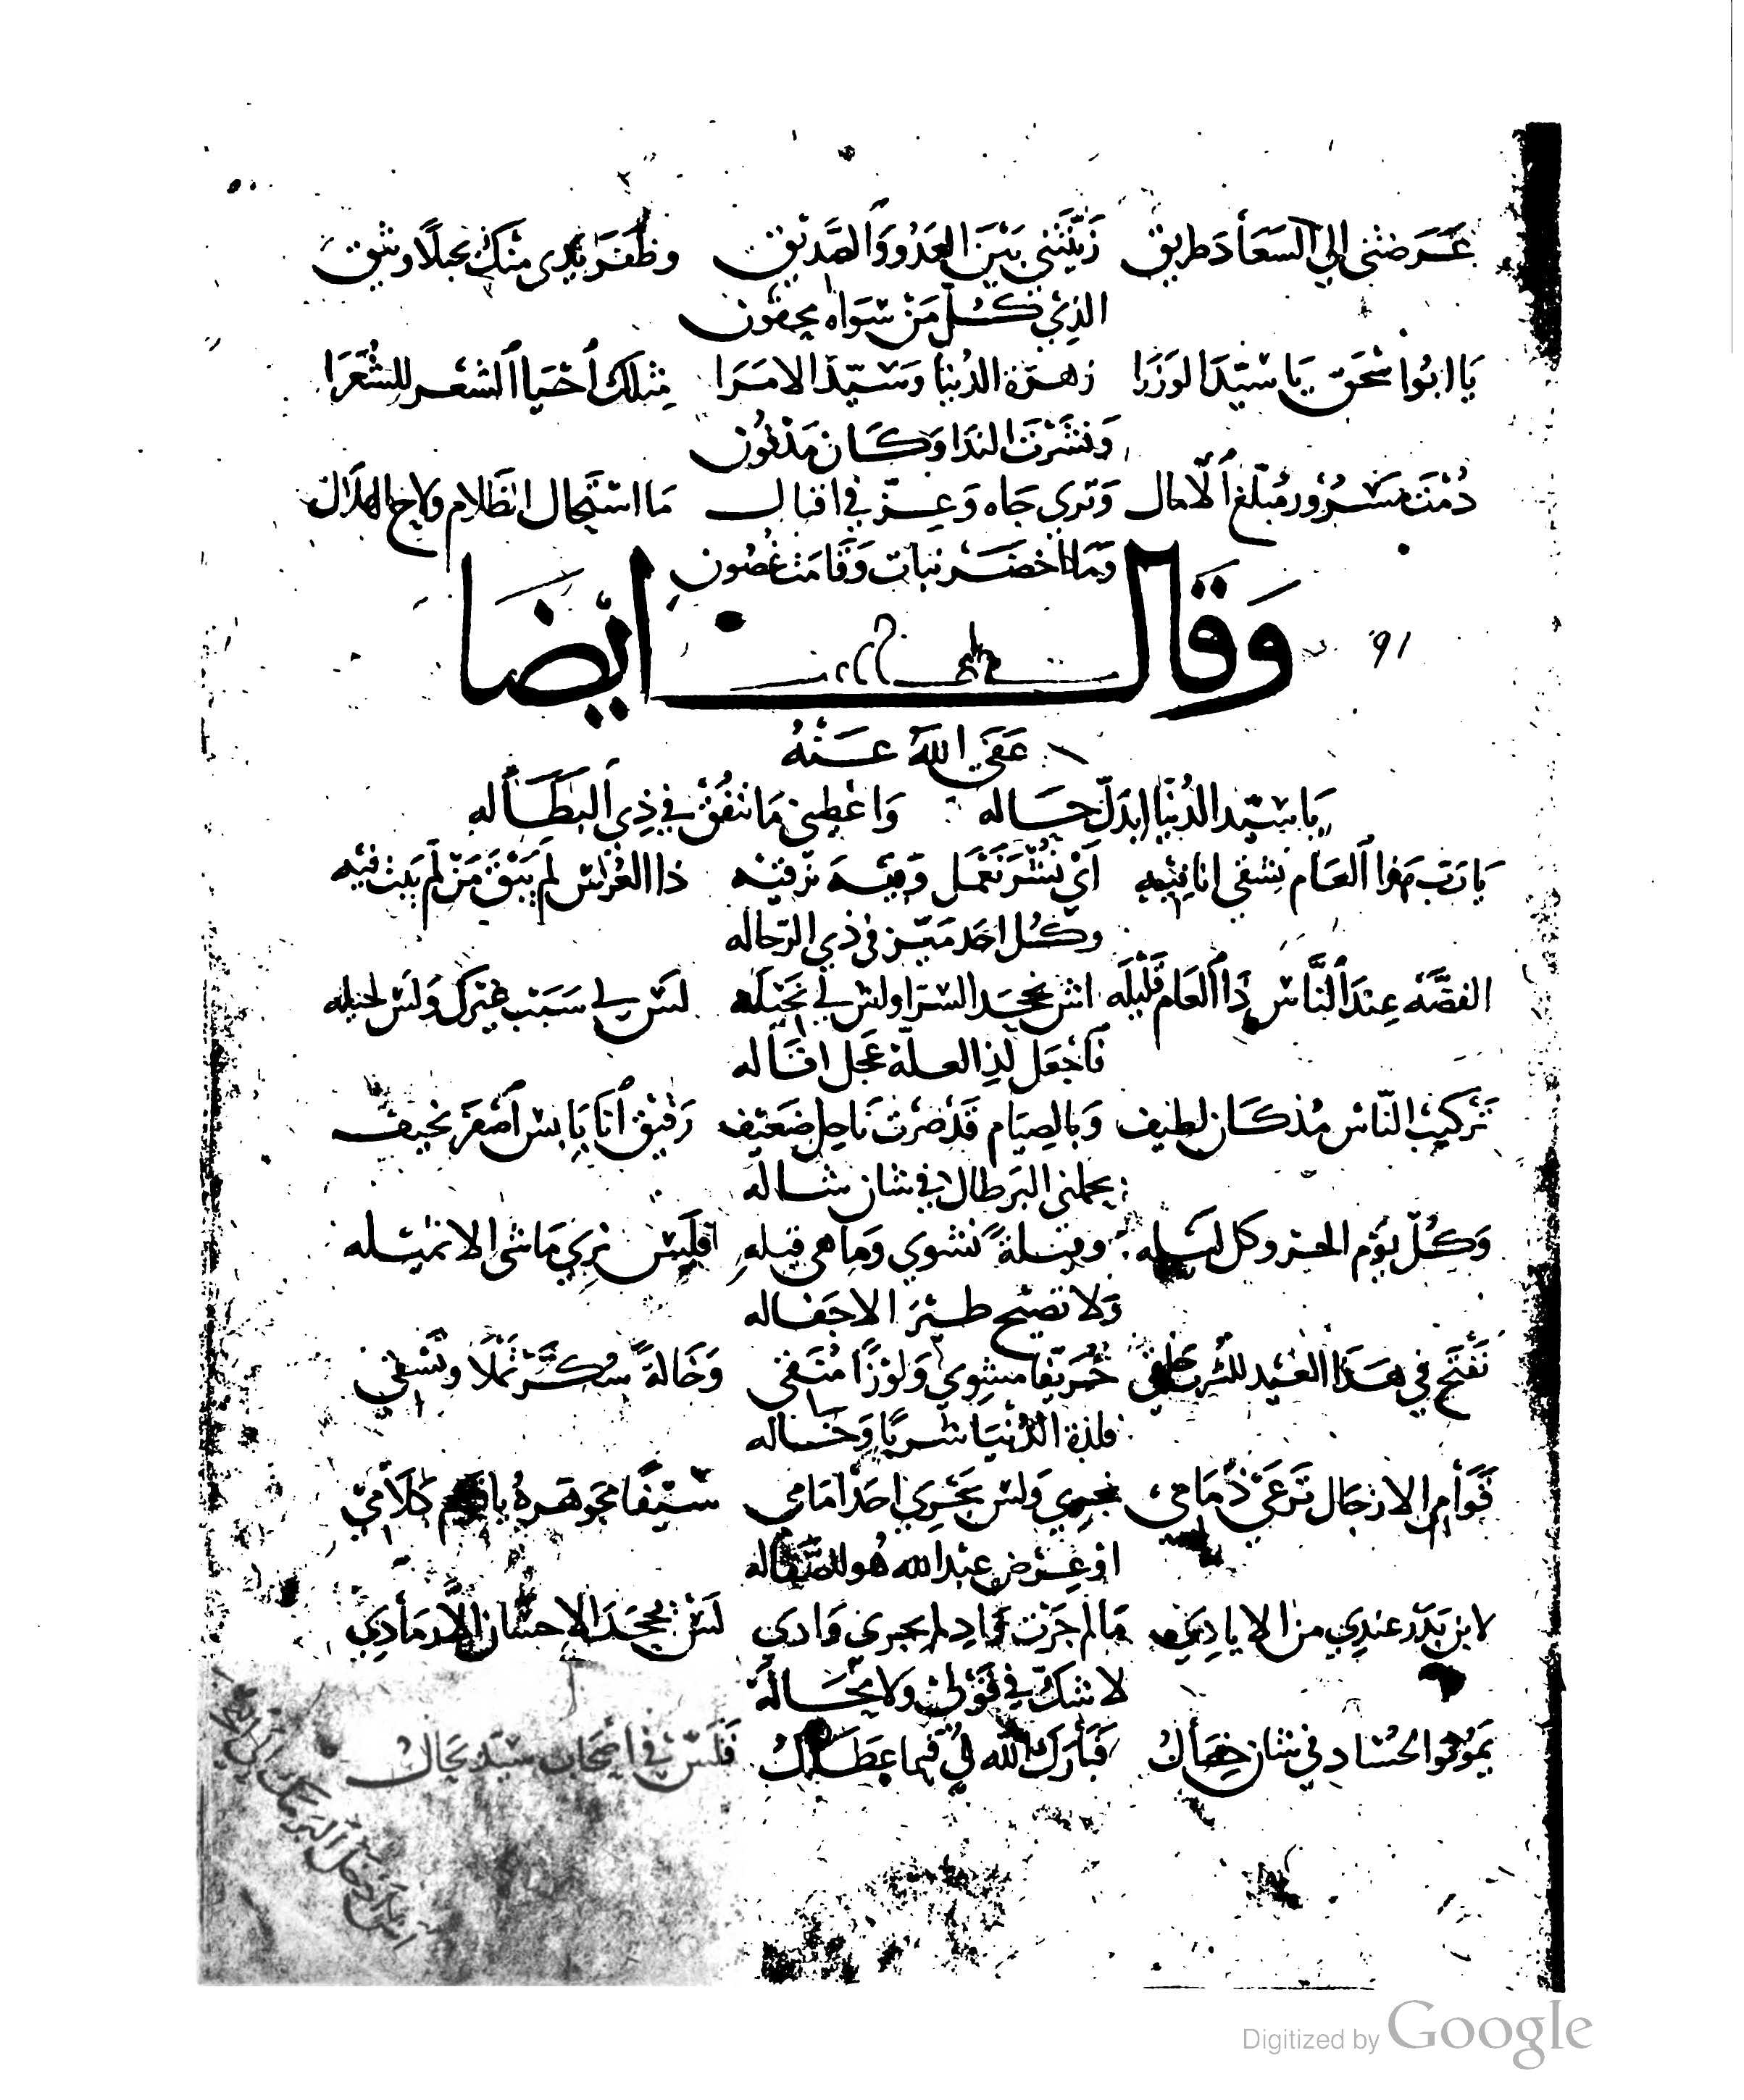 عَرَضتني الي السَعَاد طريق زَيّنتني بَيْن العَدُو وَالصَّديق وظفَرَ يَدي منكَ بحبلًا وثيق
الذِي كُل مَن سَواه مجفون
يَا ابُوا سحَق يَا سيّدَ الوَزَرا زهرَة الدُنيا وَسَيّدَ الامَرَا مِثلك أحْيَا الشعر للشُعَرَا
وَنشَرْتَ الندَا وَكَان مَدْفُون
دُمْتَ مَسرُور مُبَلّغ الآمال وَتري جَاه وَعِز في اقبال مَا استَحال الظلام ولاح الهلال
وَمَا اخضَر نبات وَقَامَت غُصُون
وَقَال ايضًا
91
عَفَى اللهُ عَنْهُ
يَا سَيّد الدُنْيَا ابدَل حَاله وَاعْطِيني مَا ننفُق في ذِي البَطَاله
يَا رَبّ هَذا العَام نشقى انا فيه أيْ نقدَر نَعْمَل وَفيه نرقيه ذا العُرس لَم يَبْقَ مَن لَم يَبِت فيه
وكُل احَد مَيّز في ذي الرّحاله
الفضّة عِندَ النَّاس ذَا العَام قَليلَه اش يجحد السرّا ولس لي نخيله لَس لي سَبَب غيرك وَلس لي حيله
فَاجْعَل لذِي العلّة عَجَل اقاله
تَركيب النّاس مُذ كان لطيف وَبالصِيَام قَد صرت نَاحِل ضَعيف رَقيق أنا يَابس أصفَر نحيف
يحملني البَرطال في شان شاله
وَكُلّ يَوم الحر وكل ليله وفتلةً نشوي وَما هي فتله فليس نري مَاشى الا نميله
وَلا نصيح طَيْرَ الا جَفاله
نَفتَح في هَذَا العيد للشرب حُريّفا مشوي وَلوزًا مُنَقى وَخَالةً سُكّر تملَا وتسقي
فلذة الدُنيَا شربًا وَخاله
قَوّام الازجَال تَرعَى ذمَامي نجري وَلس يَجري احَد امَامي سَيفًا مجَوهَرهُ كلَامي
او عِرض عبد الله هُو للصّقاله
لابن بَدر عندِي من الايادي مَا لم جَرت لم يجري وَادي لَس نجحَد الاحسَان
لا شَكّ في قَولي ولا محَالَة
يَمُوتُوا الحُسّاد في شان خصَالك تَبَارك الله لي فيما عَطَالك فلَسّ في أصحاب سَيّد بحالك